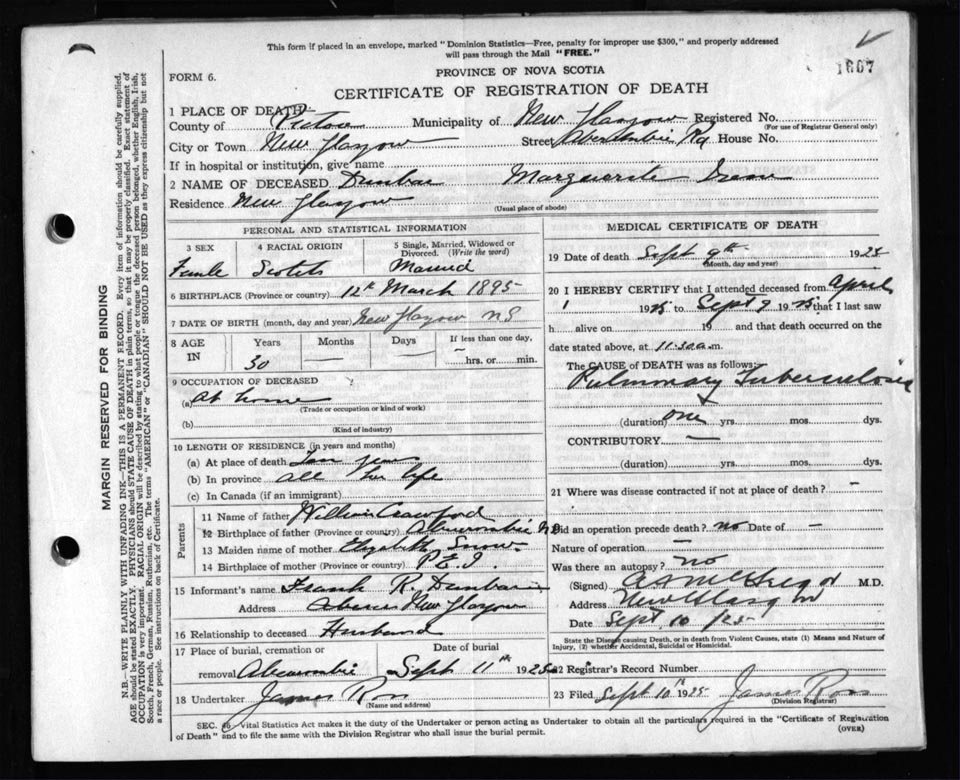 This form if placed in an envelope, marked "Dominion Statistics—Free, penalty for improper use $300," and properly addressed
will pass through the Mail "FREE."
1667
PROVINCE OF NOVA SCOTIA
FORM 6.
CERTIFICATE OF REGISTRATION OF DEATH
MARGIN RESERVED FOR BINDING
N.B.—WRITE PLAINLY WITH UNFADING INK—THIS IS A PERMANENT RECORD. Every item of information should be carefully supplied.
AGE should be stated EXACTLY. PHYSICIANS should STATE CAUSE OF DEATH in plain terms, so that it may be properly classified. Exact statement of
OCCUPATION is very important. RACIAL ORIGIN will be described by stating to what people or tongue the deceased person belonged, whether English, Irish,
Scotch, French, German, Russian, Ruthenian, etc. The terms "AMERICAN" or "CANADIAN" SHOULD NOT BE USED as they express citizenship but not
a race or people. See instructions on back of Certificate.
1 PLACE OF DEATH
County of Pictou Municipality of New Glasgow Registered No.
(For use of Registrar General only)
City or Town New Glasgow Street Abercrombie Rd House No.
If in hospital or institution, give name
2 NAME OF DECEASED Dunbar Marguerite
Residence New Glasgow
(Usual place of abode)
PERSONAL AND STATISTICAL INFORMATION
3 SEX
4 RACIAL ORIGIN
5 Single, Married, Widowed or
Divorced. (Write the word)
Female Scotch Married
6 BIRTHPLACE (Province or country) 12th March 1895
7 DATE OF BIRTH (month, day and year) New Glasgow NS
8 AGE IN
Years Months Days If less than one day,
30 — — — hrs. or min.
9 OCCUPATION OF DECEASED
(a) At home
(Trade or occupation or kind of work)
(b)
(Kind of industry)
10 LENGTH OF RESIDENCE (in years and months)
(a) At place of death years
(b) In province all her life
(c) In Canada (if an immigrant)
Parents
11 Name of father William Crawford
12 Birthplace of father (Province or country) Abercrombie NS
13 Maiden name of mother Elizabeth
14 Birthplace of mother (Province or country) P.E.I.
15 Informant's name Frank R. Dunbar
Address New Glasgow
16 Relationship to deceased Husband
17 Place of burial, cremation or Date of burial
removal Abercrombie Sept 11th 1925
18 Undertaker James Ross
(Name and address)
MEDICAL CERTIFICATE OF DEATH
19 Date of death Sept 9th 1925
(Month, day and year)
20 I HEREBY CERTIFY that I attended deceased from April
1 1925 to Sept 9 1925 that I last saw
h alive on 19 and that death occurred on the
date stated above, at 11.30 a.m.
The CAUSE OF DEATH was as follows:
Pulmonary Tuberculosis
(duration) one yrs. mos. dys.
CONTRIBUTORY —
(duration) yrs. mos. dys.
21 Where was disease contracted if not at place of death? —
Did an operation precede death? no Date of —
Nature of operation —
Was there an autopsy? no
(Signed) M.D.
Address New Glasgow
Date Sept 10 /25
State the Disease causing Death, or in death from Violent Causes, state (1) Means and Nature of
Injury, (2) whether Accidental, Suicidal or Homicidal.
22 Registrar's Record Number
23 Filed Sept 10th 1925 James Ross
(Division Registrar)
SEC. Vital Statistics Act makes it the duty of the Undertaker or person acting as Undertaker to obtain all the particulars required in the "Certificate of Registration
of Death" and to file the same with the Division Registrar who shall issue the burial permit.
(OVER)